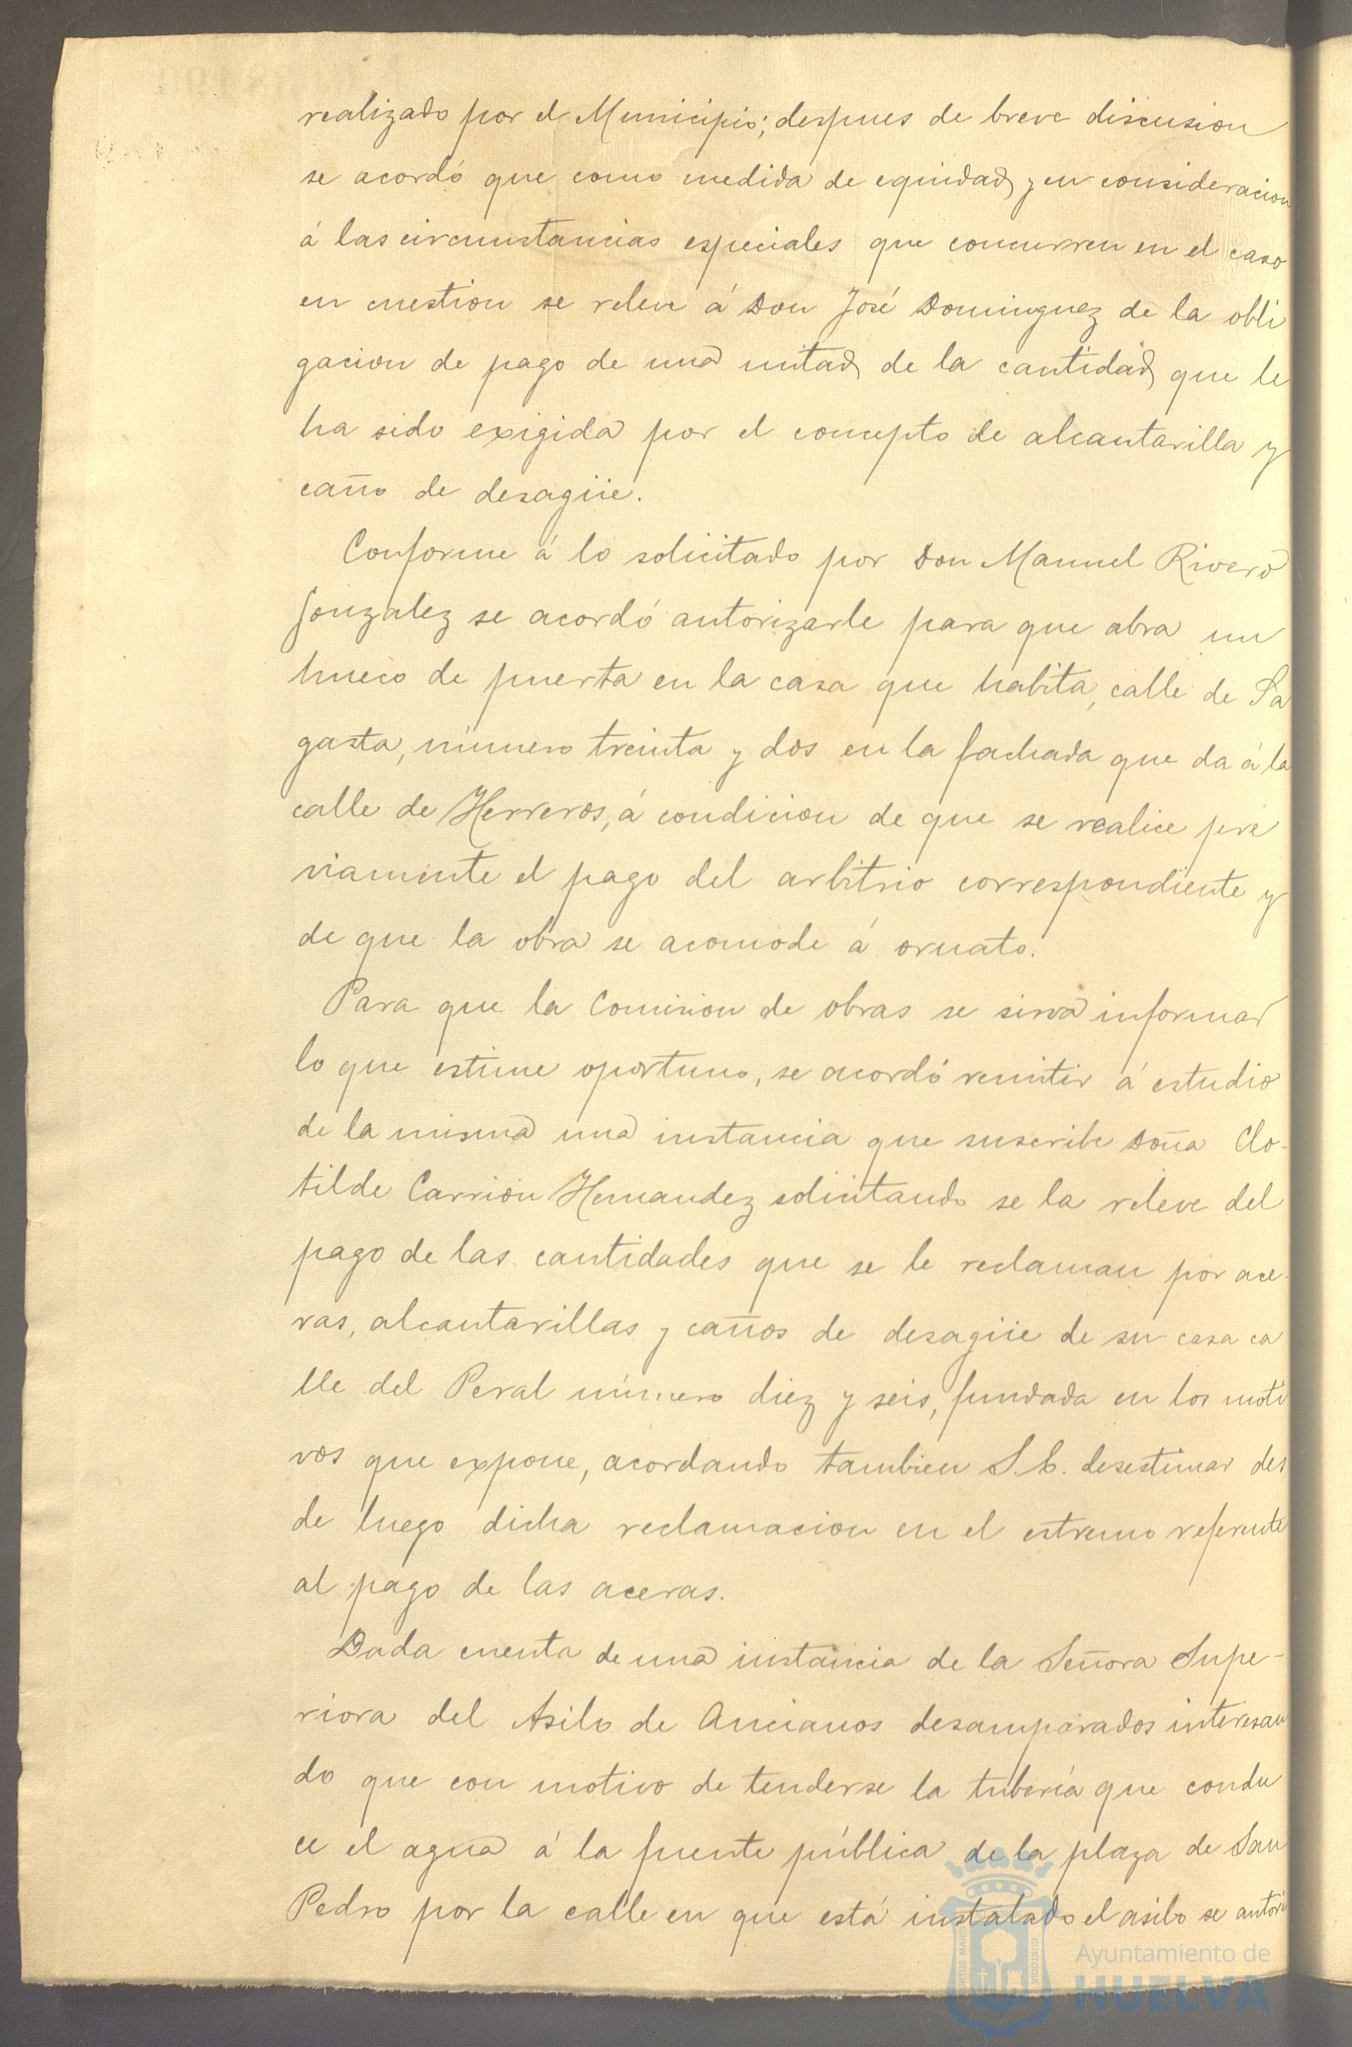 realizado por el Municipio; despues de breve discusion
se acordó que como medida de equidad y en consideracion
á las circunstancias especiales que concurren en el caso
en cuestion se releve á Don José Dominguez de la obli
gacion de pago de una mitad de la cantidad que le
ha sido exigida por el concepto de alcantarilla y
caño de desagüe.
Conforme á lo solicitado por Don Manuel Rivero
Gonzalez se acordó autorizarle para que abra un
hueco de puerta en la casa que habita, calle de Sa
gasta, número treinta y dos en la fachada que da á la
calle de Herreros, á condicion de que se realice pré
viamente el pago del arbitrio correspondiente y
de que la obra se acomode á ornato.
Para que la Comision de obras se sirva informar
lo que estime oportuno, se acordó remitir á estudio
de la misma una instancia que suscribe Doña Clo-
tilde Carrion Hernandez solicitando se la releve del
pago de las cantidades que se le reclaman por ace-
ras, alcantarillas y caños de desagüe de su casa ca
lle del Peral número diez y seis, fundada en los moti
vos que expone, acordando tambien S.E. desestimar des
de luego dicha reclamacion en el estremo referente
al pago de las aceras.
Dada cuenta de una instancia de la Señora Supe-
riora del Asilo de Ancianos desamparados interesan
do que con motivo de tenderse la tubería que condu
ce el agua á la fuente pública de la plaza de San
Pedro por la calle en que está instalado el asilo se autori
Ayuntamiento de
HUELVA